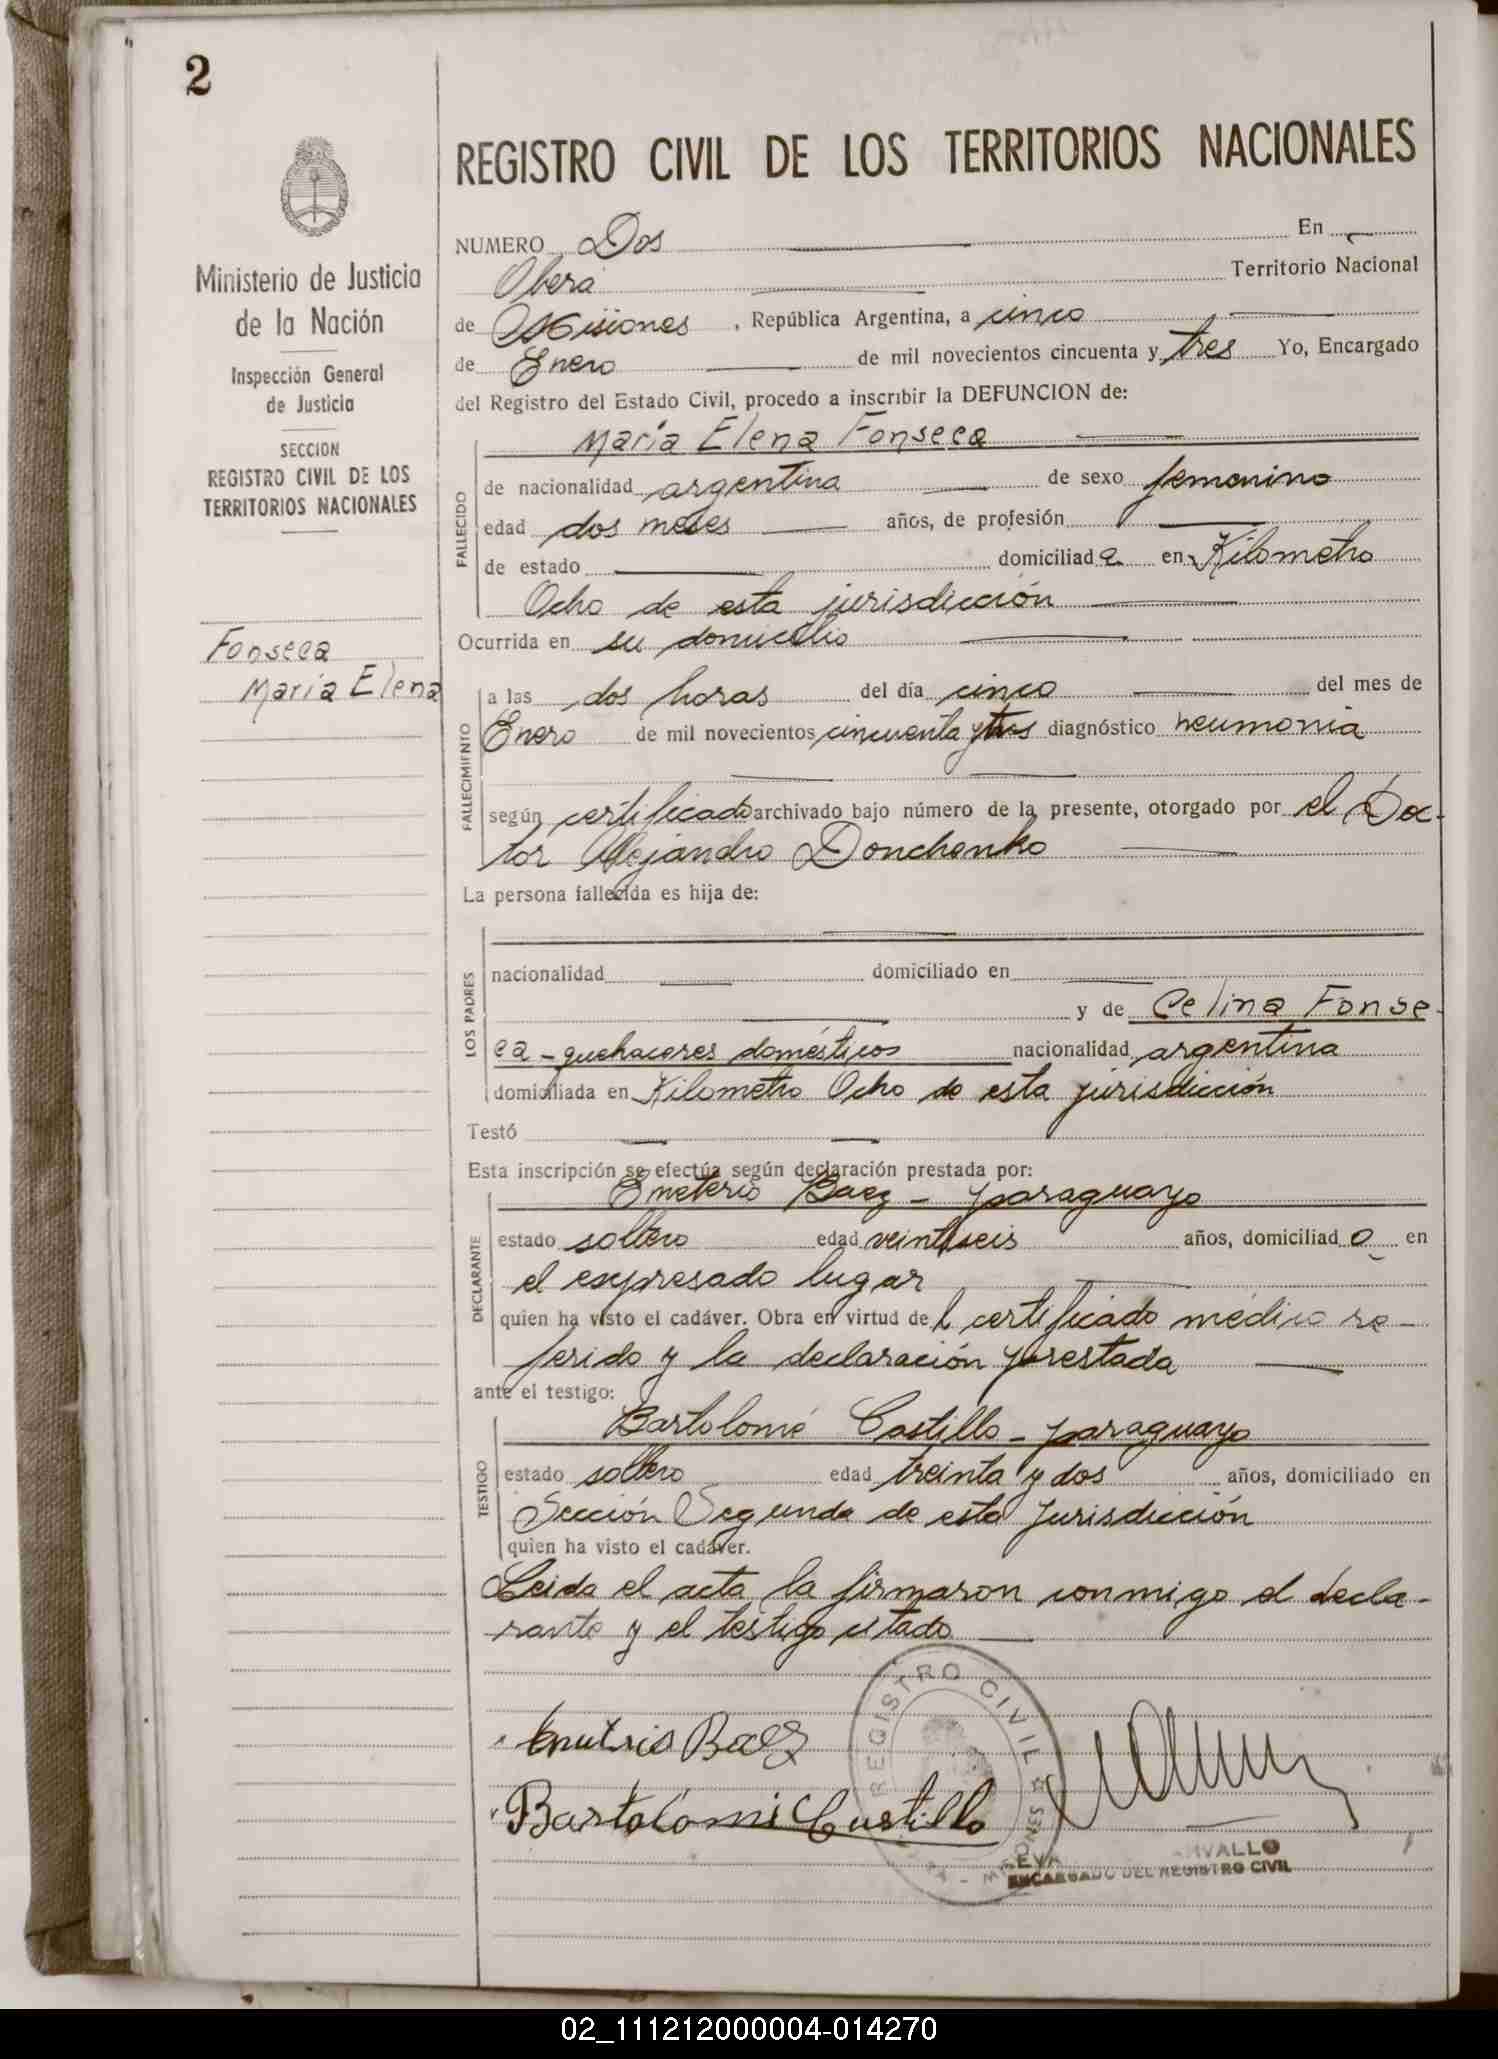 2
Ministerio de Justicia
de la Nación
Inspección General
de Justicia
SECCION
REGISTRO CIVIL DE LOS
TERRITORIOS NACIONALES
Fonseca
María Elena
REGISTRO CIVIL DE LOS TERRITORIOS NACIONALES
NUMERO Dos En
Oberá Territorio Nacional
de Misiones , República Argentina, a cinco
de Enero de mil novecientos cincuenta y tres Yo, Encargado
del Registro del Estado Civil, procedo a inscribir la DEFUNCION de:
FALLECIDO
María Elena Fonseca
de nacionalidad argentina de sexo femenino
edad dos meses años, de profesión
de estado domiciliad a en Kilometro
Ocho de esta jurisdicción
Ocurrida en su domicilio
FALLECIMIENTO
a las dos horas del día cinco del mes de
Enero de mil novecientos cincuenta y tres diagnóstico neumonia
según certificado archivado bajo número de la presente, otorgado por el Doc-
tor Alejandro Donchenko
La persona fallecida es hija de:
LOS PADRES
nacionalidad domiciliado en
y de Celina Fonse-
ca - quehaceres domésticos nacionalidad argentina
domiciliada en Kilometro Ocho de esta jurisdicción
Testó
Esta inscripción se efectúa según declaración prestada por:
DECLARANTE
Emeterio Baez - paraguayo
estado soltero edad veintiseis años, domiciliad o en
el expresado lugar
quien ha visto el cadáver. Obra en virtud de l certificado médico re-
ferido y la declaración prestada
ante el testigo:
TESTIGO
Bartolomé Castillo - paraguayo
estado soltero edad treinta y dos años, domiciliado en
Sección Segunda de esta Jurisdicción
quien ha visto el cadáver.
Leida el acta la firmaron conmigo el decla-
rante y el testigo citado
Baez
Bartolomé Castillo
REGISTRO CIVIL
MISIONES
ENCARGADO DEL REGISTRO CIVIL
02_111212000004-014270